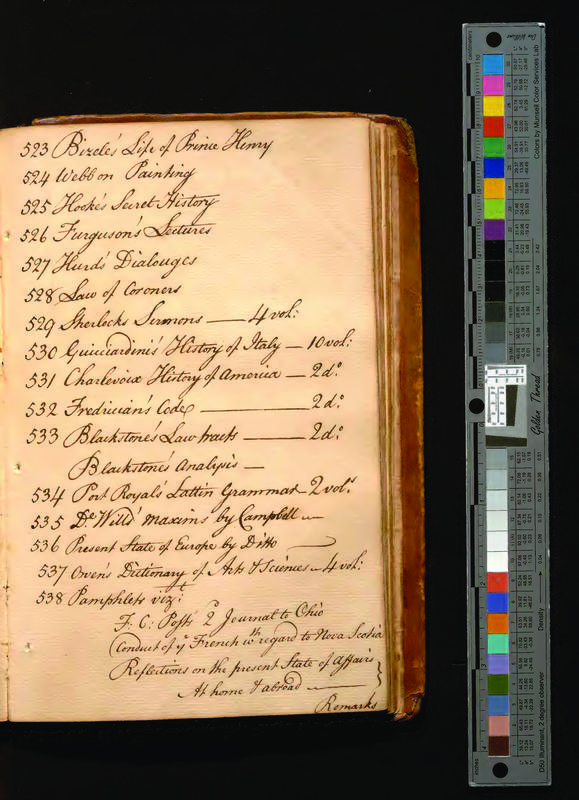 523 Bizele's Life of Prince Henry
524 Webb on Painting
525 Hooke's Secret History
526 Furguson's Lectures
527 Hurd's Dialouges
528 Law of Coroners
529 Sherlocks Sermons — 4 vol:
530 Guicciardini's History of Italy — 10 vol:
531 Charlevoix History of America — 2 do:
532 Fredrician's Code — 2 do:
533 Blackstone's Law tracts — 2 do:
Blackstone's Analysis —
534 Port Royal's Lattin Grammar — 2 vols
535 De Witts' Maxims by Campbell —
536 Present State of Europe by Ditto —
537 Owen's Dictionary of Arts & Sciences — 4 vol:
538 Pamphlets vizt:
F: C: Posts 2d Journal to Ohio
Conduct of ye French wth regard to Nova Scotia
Reflections on the present State of Affairs
At home & abroad —
Remarks
centimeters
Colors by Munsell Color Services Lab
Golden Thread
Density
D50 Illuminant, 2 degree observer
inches